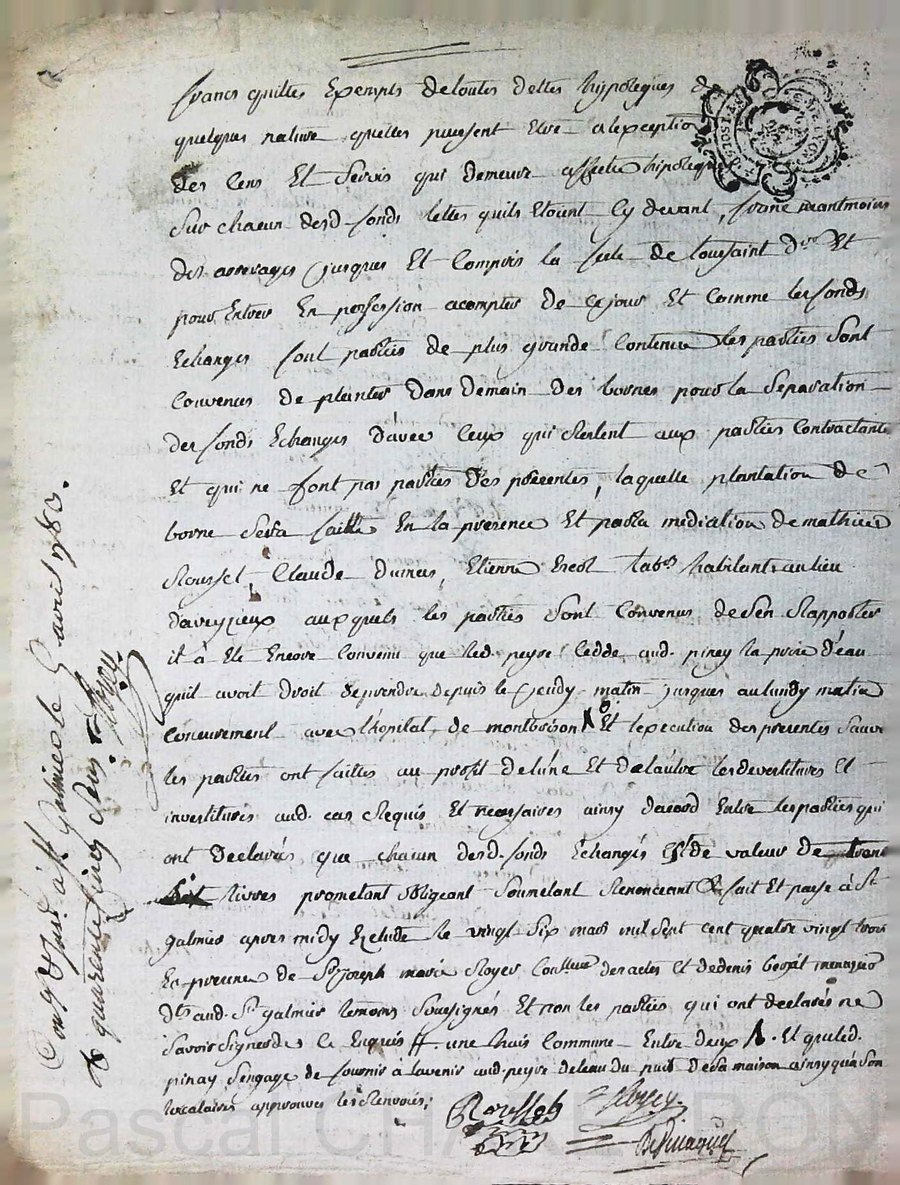 francs quittes Exempts de toutes dettes hipoteques de
quelques nature quelles puissent Etre a lexception
des Cens Et Servis qui demeure affecté hipoteque
Sur chacun desd. fonds telles quils Etoint Cy devant, franc neantmoins
des arrerages jusques Et Compris la fete de toussaint d.re Et
pour Entrer En possession acompter de Cejour Et Comme les fonds
Echangés sont parties de plus grande Contenue les parties Sont
Convenus de planter dans demain des bornes pour la Separation
des fonds Echangés d'avec Ceux qui Restent aux parties Contractante
Et qui ne font pas parties des presentes, laquelle plantation de
borne Sera faitte En la presence Et par la mediation de mathieu
Rousset, Claude dumas, Etienne lab.rs habitants au lieu
daveyzieux auxquels les parties Sont Convenus de Sen Rapporter
il à Eté Encore Convenu que led. peyre Cedde aud. pinay la prise d'eau
quil avoit droit de prendre depuis le jeudy matin jusques au lundy matin
Concurement avec l'hopital de montbrison Et lexecution des presentes
les parties ont faittes au profit de lune Et de lautre les devestitures Et
investitures aud. cas Requis Et necessaires ainsy dacord Entre les parties qui
ont declarés que chacun desd. fonds Echangés Est de valeur de
livres prometant obligeant Soumetant Renonceant &c fait Et passé à St
galmier apres midy Etude le vingt Six mars mil Sept Cent quatre vingt trois
En presence de Sr Joseph marie Royer Con.lleur des actes Et de denis menuisier
dt aud. St. galmier temoins Soussignés Et non les parties qui ont declarés ne
Savoir Signer de Ce Enquis ff. une haie Commune Entre deux. Et que led.
pinay S'engage de fournir à lavenir aud. peyre de leau du puit de Sa maison ainsy qua Son
locataires approuves les Renvoies;
Rousset Royer
Con.lé & Jnsé à St Galmier le 5 avril 1783.
Rx quarente cinq sols Royer.
Pascal CHAMBON